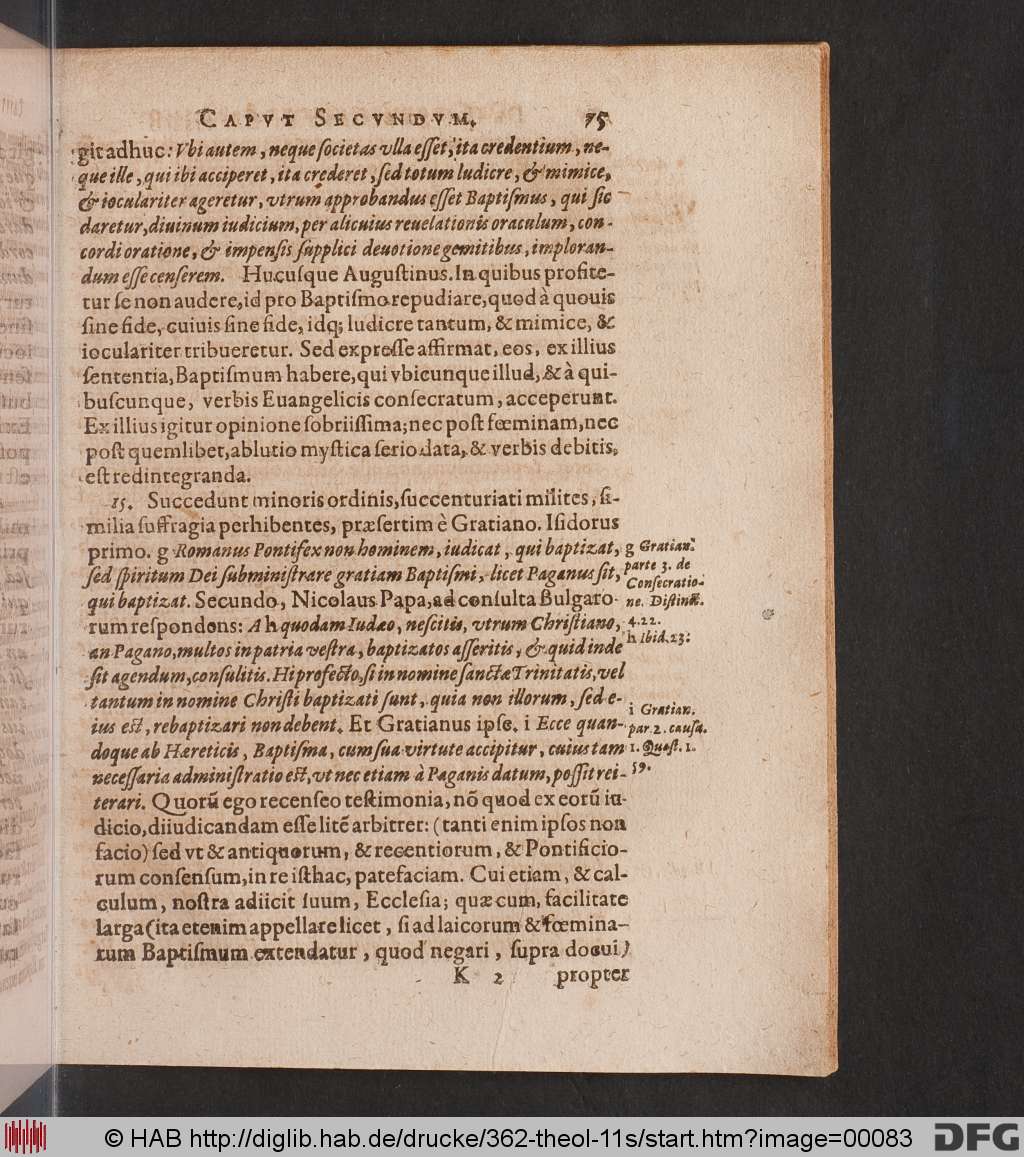 CAPVT SECVNDVM. 75
git adhuc: Vbi autem, neque ſocietas vlla eſſet, ita credentium, ne-
que ille, qui ibi acciperet, ita crederet, ſed totum ludicre, & mimice,
& ioculariter ageretur, vtrum approbandus eſſet Baptiſmus, qui ſic
daretur, diuinum iudicium, per alicuius reuelationis oraculum, con-
cordi oratione, & impenſis ſupplici deuotione gemitibus, imploran-
dum eſſe cenſerem. Hucuſque Auguſtinus. In quibus profite-
tur ſe non audere, id pro Baptiſmo repudiare, quod à quouis
ſine fide, cuiuis ſine fide, idq; ludicre tantum, & mimice, &
ioculariter tribueretur. Sed expreſſe affirmat, eos, ex illius
ſententia, Baptiſmum habere, qui vbicunque illud, & à qui-
buſcunque, verbis Euangelicis conſecratum, acceperunt.
Ex illius igitur opinione ſobriiſſima; nec poſt fœminam, nec
poſt quemlibet, ablutio myſtica ſerio data, & verbis debitis,
eſt redintegranda.
15. Succedunt minoris ordinis, ſuccenturiati milites, ſi-
milia ſuffragia perhibentes, præſertim è Gratiano. Iſidorus
primo. g Romanus Pontifex non hominem, iudicat, qui baptizat,
ſed ſpiritum Dei ſubminiſtrare gratiam Baptiſmi, licet Paganus ſit,
qui baptizat. Secundo, Nicolaus Papa, ad conſulta Bulgaro-
rum reſpondens: A h quodam Iudæo, neſcitis, vtrum Chriſtiano,
an Pagano, multos in patria veſtra, baptizatos aſſeritis, & quid inde
ſit agendum, conſulitis. Hi profecto, ſi in nomine ſanctæ Trinitatis, vel
tantum in nomine Chriſti baptizati ſunt, quia non illorum, ſed e-
ius eſt, rebaptizari non debent. Et Gratianus ipſe. i Ecce quan-
doque ab Hæreticis, Baptiſma, cum ſua virtute accipitur, cuius tam
neceſſaria adminiſtratio eſt, vt nec etiam à Paganis datum, poſſit rei-
terari. Quorũ ego recenſeo teſtimonia, nõ quod ex eorũ iu-
dicio, diiudicandam eſſe litẽ arbitrer: (tanti enim ipſos non
facio) ſed vt & antiquorum, & recentiorum, & Pontificio-
rum conſenſum, in re iſthac, patefaciam. Cui etiam, & cal-
culum, noſtra adiicit ſuum, Eccleſia; quæ cum, facilitate
larga (ita etenim appellare licet, ſi ad laicorum & fœmina-
rum Baptiſmum extendatur, quod negari, ſupra docui)
K 2 propter
g Gratian.
parte 3. de
Conſecratio-
ne. Diſtinct.
4. 22.
h Ibid. 23.
i Gratian.
par 2. cauſa.
1. Quæſt. 1.
59.
© HAB http://diglib.hab.de/drucke/362-theol-11s/start.htm?image=00083
DFG